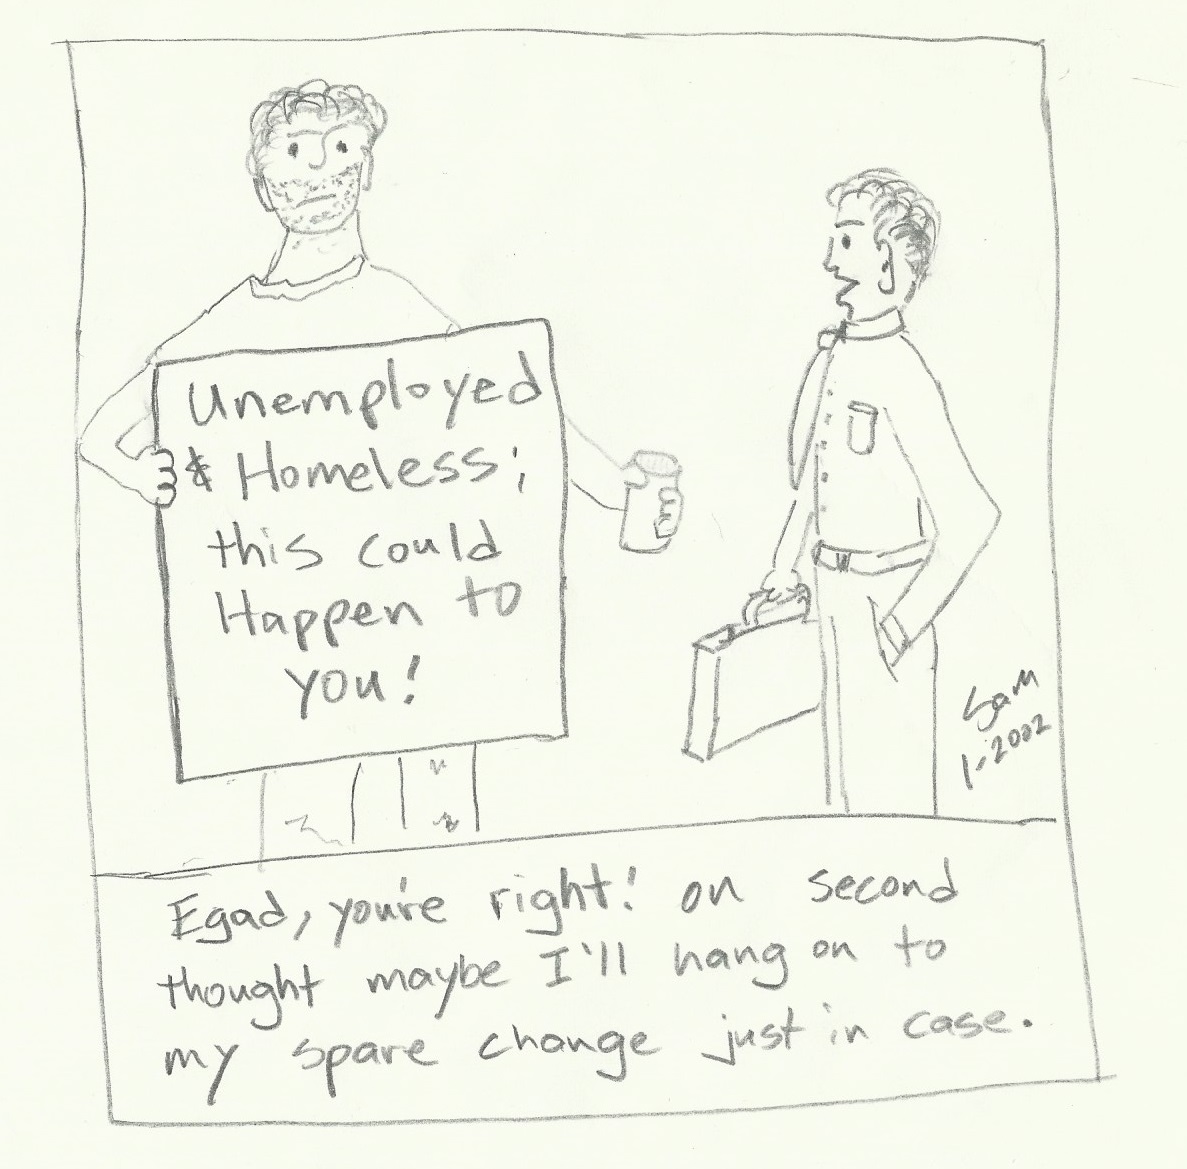 Unemployed
& Homeless;
this could
Happen to
you!
Sam
1-2002
Egad, you're right! on second
thought maybe I'll hang on to
my spare change just in case.